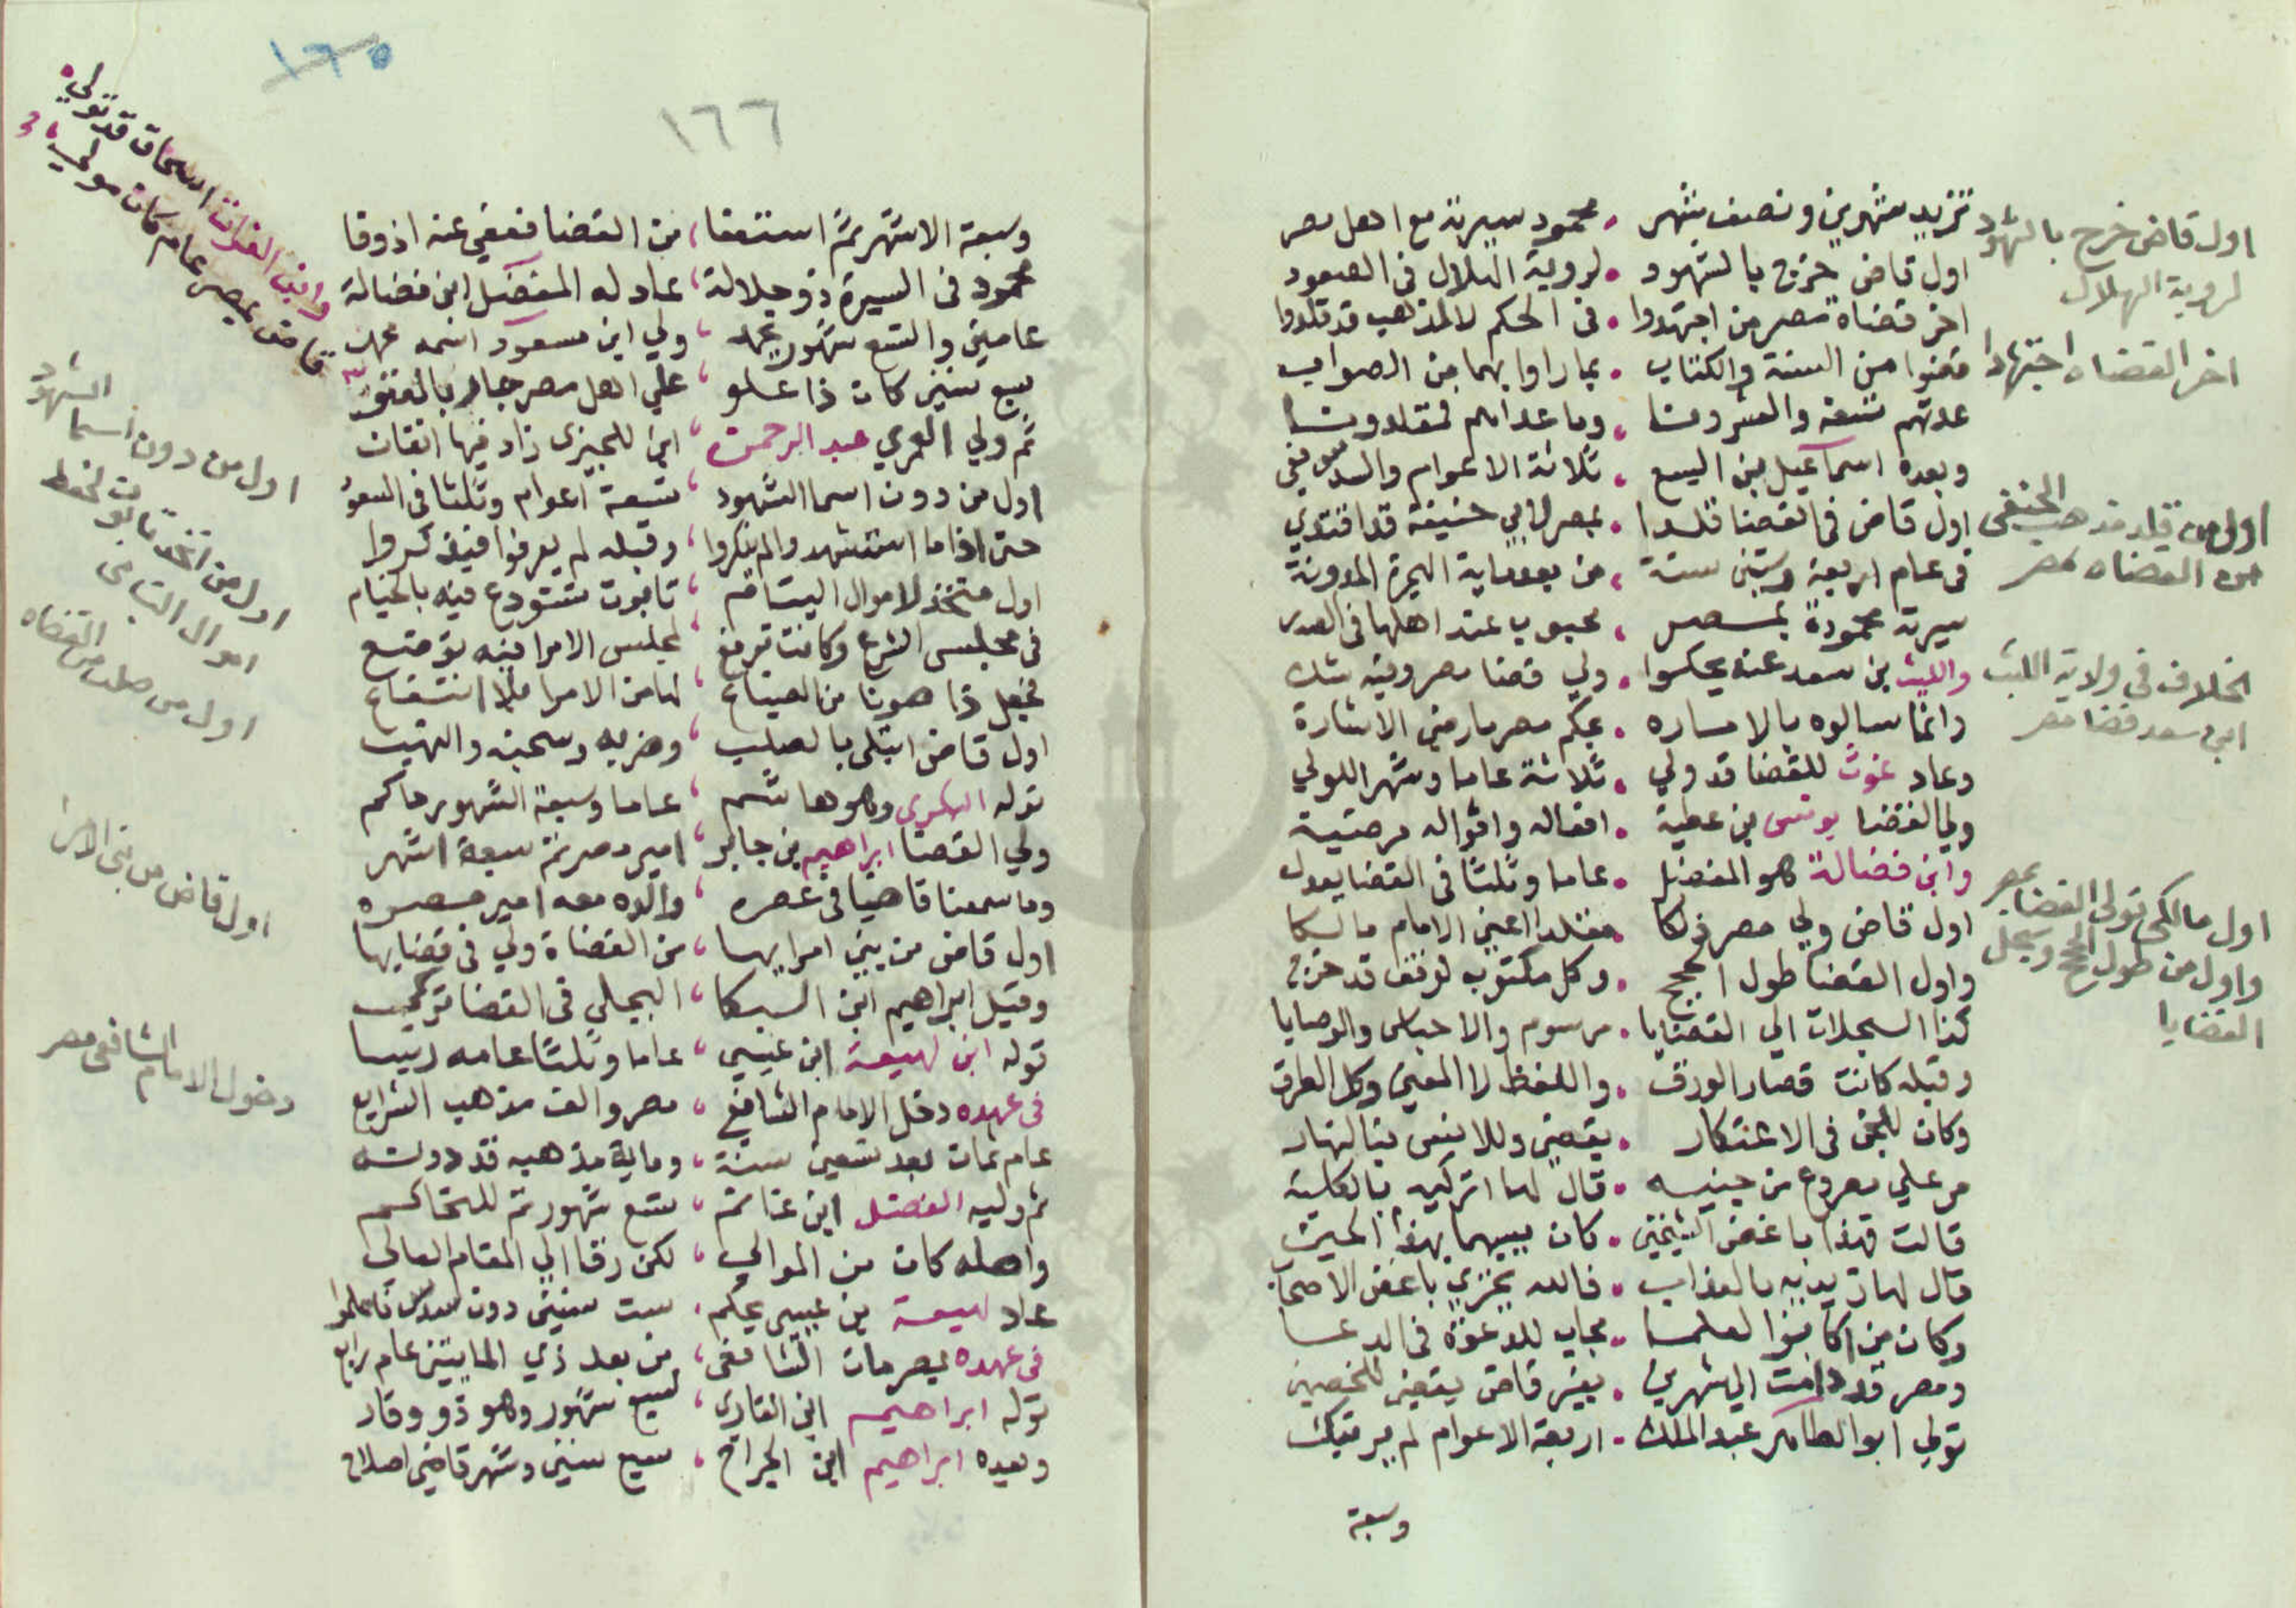 تزيد شهرين ونصف شهر . محمود سيرته مع اهل مصر
اول قاض خرج بالشهود . لروية الهلال فى الصعود
اخر قضاة مصر من اجتهدوا . فى الحكم لا لمذهب قد قلدوا
فقضوا من السنة والكتاب . بما راوا بهما من الصواب
عدتهم تسعة والعشرونا . وما عداهم فمقلدونا
وبعده اسماعيل بن اليسع . ثلاثة الاعوام والسدس
اول قاض فى القضا قلدا . بمصر لابي حنيفة قد اقتدي
فى عام اربعة وستين سنة . من بعد ماية الهجرة المدونة
سيرته محمودة بمصر . محبوب عند اهلها فى الصدر
والليث بن سعد عنه يحكوا . ولي قضا مصر وفيه شك
وانما سالوه بالاساره . بحكم مصر بارضى الاشارة
وعاد غوث للقضا قد ولي . ثلاثة عاما وشهر اللولي
ولي القضا يونس بن عطية . افعاله واقواله مرضية
وابن فضالة هو المفضل . عاما وثلثا فى القضا يعدل
اول قاض ولي مصر ذلكا . مقلدا اعنى الامام مالكا
واول القضا طول الحجج . وكل مكتوب لوقف قد خرج
كذا السجلات الي القضايا . مرسوم والاحباس والوصايا
وقبله كانت قصار الورق . واللفظ لا المعنى وكل الطرق
وكان للجن فى الاعتكار . يقضى وللانس بنا النهار
مر علي مصروع من جنيه . قال لها اتركيه بالكلية
قالت فهذا باغض الشيخين . كان يسبهما بهذا الحين
قال لها زيديه بالعذاب . فالله يخزي باغض الاصحاب
وكان من اكابر العلما . مجاب للدعوة فى الدعا
ومصر قد دامت الي شهرين . بغير قاض يقضى للخصمين
تولي ابو الطاهر عبد الملك . اربعة الاعوام لم يرتبك
وسبعة
اول قاض خرج بالشهود
لروية الهلال
اخر القضاه اجتهادا
اول من قلد مذهب الحنفى
من القضاه بمصر
الخلاف فى ولاية الليث
ابن سعد قضا مصر
اول مالكى تولى القضا بمصر
واول من طول الحجج وسجل
القضايا
١٦٥
١٦٦
وابن الفرات اسحاق قد تولي
قاض بمصر عام كان مولي
وسبعة الاشهر ثم استعفا ، من القضا فعفي عنه اذ وفا
محمود فى السيرة ذو جلالة ، عاد له المفضل ابن فضالة
عامين والتسع شهور بحمد ، ولي ابن مسعود اسمه محمد
سبع سنين كان ذا علو ، علي اهل مصر جار بالعتو
ثم ولي العمري عبد الرحمن ، ابن للجيزى زاد فيها اتقان
اول من دون اسما الشهود ، تسعة اعوام وثلثا فى السعود
حتى اذا ما استشهد والم ينكروا ، وقبله لم يعرفوا فيذكروا
اول متخذ لاموال اليتام ، تابوت تستودع فيه بالختام
فى مجلس الشرع وكانت ترفع ، لمجلس الامرا فيه توضع
فجعل ذا صونا من الضياع ، لها من الامرا فلا انتفاع
اول قاض ابتلى بالصلب ، وضربه وسجنه والنهب
توله البكري وهو هاشم ، عاما وسبعة الشهور حاكم
ولي القضا ابراهيم بن جابر ، امير مصر ثم سبعة اشهر
وما سمعنا قاضيا فى عصره ، والده معه امير مصره
اول قاض من بنى امرايها ، من القضاة ولي فى قضايها
وقيل ابراهيم ابن البكا ، البجلي فى القضا تزكى
توله ابن لهيعة ابن عيسي ، عاما وثلثا عامه رييسا
فى عهده دخل الامام الشافعي ، مصر والف مذهب الشرايع
عام ثمان بعد تسعين سنة ، وماية مذهبه قد دونه
ثم وليه الفضل ابن غانم ، تسع شهور ثم للتحاكم
واصله كان من الموالي ، لكن رقا الي المقام العالي
عاد لهيعة بن عيسى يحكم ، ست سنين دون سدس فاعلموا
فى عهده بمصر مات الشافعى ، من بعد ذي المايتين عام رابع
توله ابراهيم ابن القاري ، لسبع شهور وهو ذو وقار
وبعده ابراهيم ابن الجراح ، سبع سنين وشهر قاضى اصلاح
اول من دون اسما الشهود
اول من اتخذ تابوت لحفظ
اموال اليتامى
اول من صلب من القضاه
اول قاض من بنى الامرا
دخول الامام الشافعى مصر